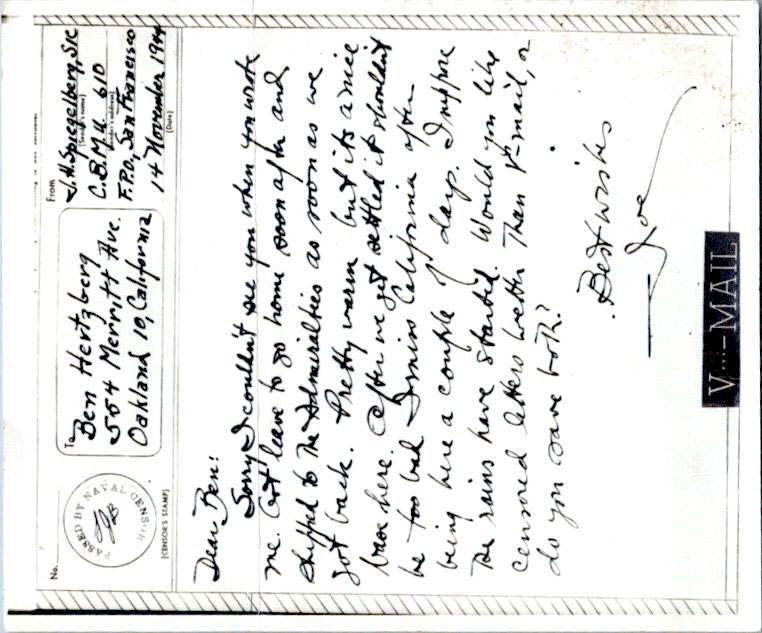 No.
PASSED BY NAVAL CENSOR
(CENSOR'S STAMP)
To
Ben Hertzberg
554 Merritt Ave.
Oakland 10, California
From
J.H. Spiegelberg, S1c
(Sender's name)
C.B.M.U. 610
(Sender's address)
F.P.O., San Francisco
14 November 1944
(Date)
Dear Ben:
Sorry I couldn't see you when you wrote
me. Got leave to go home soon after and
shipped to the Admiralties as soon as we
got back. Pretty warm but its a nice
base here. After we get settled it shouldnt
be too bad. I miss California after
being here a couple of days. I suppose
the rains have started. Would you like
censored letters better than V-mail, or
do you save both?
Best wishes
Joe
V···—MAIL